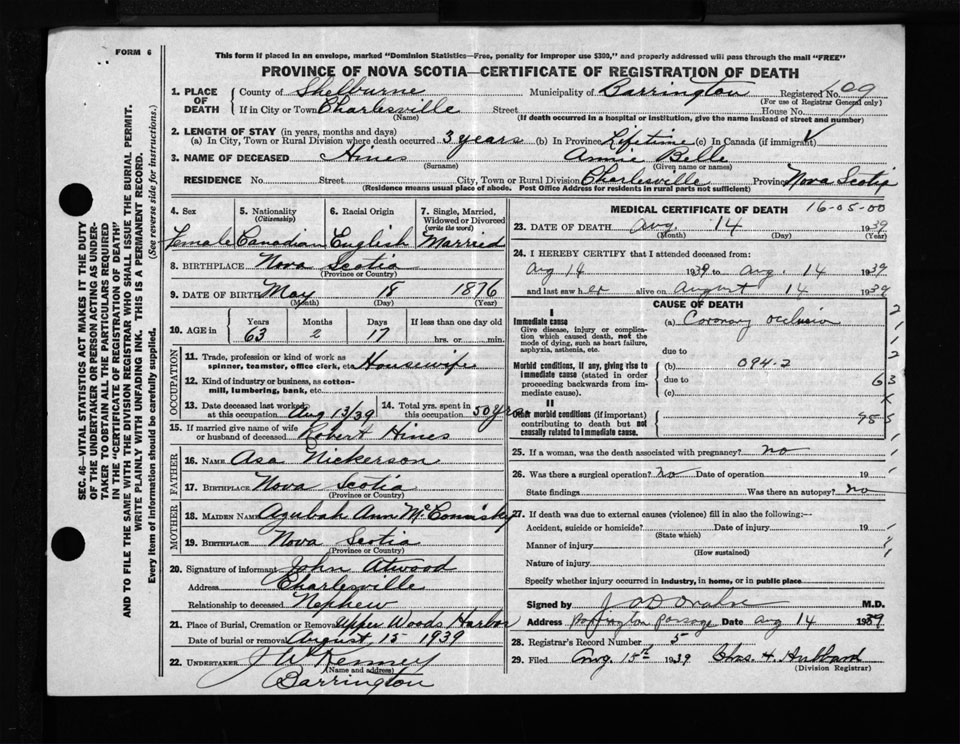 FORM 6
This form if placed in an envelope, marked "Dominion Statistics—Free, penalty for improper use $300," and properly addressed will pass through the mail "FREE"
PROVINCE OF NOVA SCOTIA—CERTIFICATE OF REGISTRATION OF DEATH
SEC. 46—VITAL STATISTICS ACT MAKES IT THE DUTY
OF THE UNDERTAKER OR PERSON ACTING AS UNDER-
TAKER TO OBTAIN ALL THE PARTICULARS REQUIRED
IN THE "CERTIFICATE OF REGISTRATION OF DEATH"
AND TO FILE THE SAME WITH THE DIVISION REGISTRAR WHO SHALL ISSUE THE BURIAL PERMIT.
WRITE PLAINLY WITH UNFADING INK. THIS IS A PERMANENT RECORD.
Every item of information should be carefully supplied. (See reverse side for instructions.)
1. PLACE OF DEATH
County of Shelburne Municipality of Barrington Registered No. 109
(For use of Registrar General only)
If in City or Town Charlesville Street House No.
(Name) (If death occurred in a hospital or institution, give the name instead of street and number)
2. LENGTH OF STAY (in years, months and days)
(a) In City, Town or Rural Division where death occurred 3 years (b) In Province Lifetime (c) In Canada (if immigrant)
3. NAME OF DECEASED Hines Annie Belle
(Surname) (Given name or names)
RESIDENCE No. Street City, Town or Rural Division Charlesville Province Nova Scotia
(Residence means usual place of abode. Post Office Address for residents in rural parts not sufficient)
4. Sex 5. Nationality (Citizenship) 6. Racial Origin 7. Single, Married, Widowed or Divorced (write the word)
Female Canadian English Married
8. BIRTHPLACE Nova Scotia
(Province or Country)
9. DATE OF BIRTH May 18 1876
(Month) (Day) (Year)
10. AGE in Years Months Days If less than one day old
63 2 17 hrs. or min.
OCCUPATION
11. Trade, profession or kind of work as spinner, teamster, office clerk, etc. Housewife
12. Kind of industry or business, as cotton-mill, lumbering, bank, etc.
13. Date deceased last worked at this occupation Aug 13/39 14. Total yrs. spent in this occupation 50 yrs
15. If married give name of wife or husband of deceased Robert Hines
FATHER
16. NAME Asa Nickerson
17. BIRTHPLACE Nova Scotia
(Province or Country)
MOTHER
18. MAIDEN NAME Azubah Ann McCommisky
19. BIRTHPLACE Nova Scotia
(Province or Country)
20. Signature of informant John Atwood
Address Charlesville
Relationship to deceased Nephew
21. Place of Burial, Cremation or Removal Upper Woods Harbor
Date of burial or removal August 15 1939
22. UNDERTAKER J W Kenney
(Name and address)
Barrington
MEDICAL CERTIFICATE OF DEATH 16-05-00
23. DATE OF DEATH Aug. 14 1939
(Month) (Day) (Year)
24. I HEREBY CERTIFY that I attended deceased from:
Aug 14 1939 to Aug. 14 1939
and last saw her alive on August 14 1939
CAUSE OF DEATH
I
Immediate cause (a) Coronary occlusion
Give disease, injury or complication which caused death, not the mode of dying, such as heart failure, asphyxia, asthenia, etc.
due to
Morbid conditions, if any, giving rise to immediate cause (stated in order proceeding backwards from immediate cause)
(b) 094-2
due to
(c)
II
Other morbid conditions (if important) contributing to death but not causally related to immediate cause.
25. If a woman, was the death associated with pregnancy? no
26. Was there a surgical operation? no Date of operation 19
State findings Was there an autopsy? no
27. If death was due to external causes (violence) fill in also the following:—
Accident, suicide or homicide? Date of injury 19
(State which)
Manner of injury
(How sustained)
Nature of injury
Specify whether injury occurred in industry, in home, or in public place
Signed by M.D.
Address Barrington Passage Date Aug 14 1939
28. Registrar's Record Number 5
29. Filed Aug. 15th 1939 Chas. H. Hubbard
(Division Registrar)